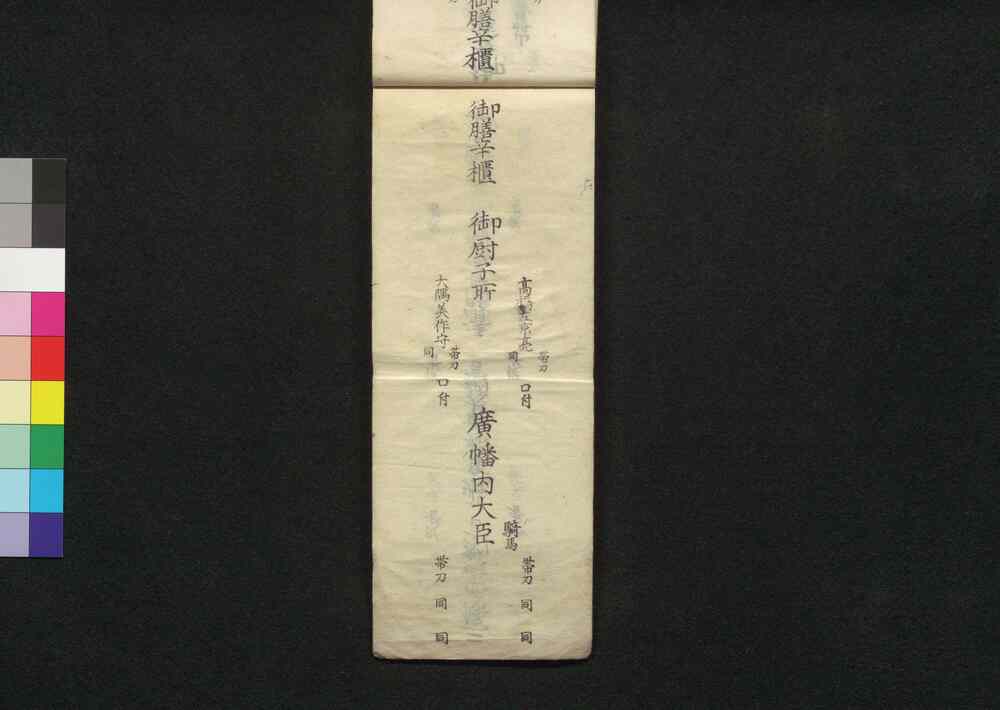 御膳辛櫃
御膳辛櫃
御厨子所
帯刀
同
口付
大隅美作守
帯刀
同
口付
廣幡内大臣
騎馬
帯刀
同
同
帯刀
同
同